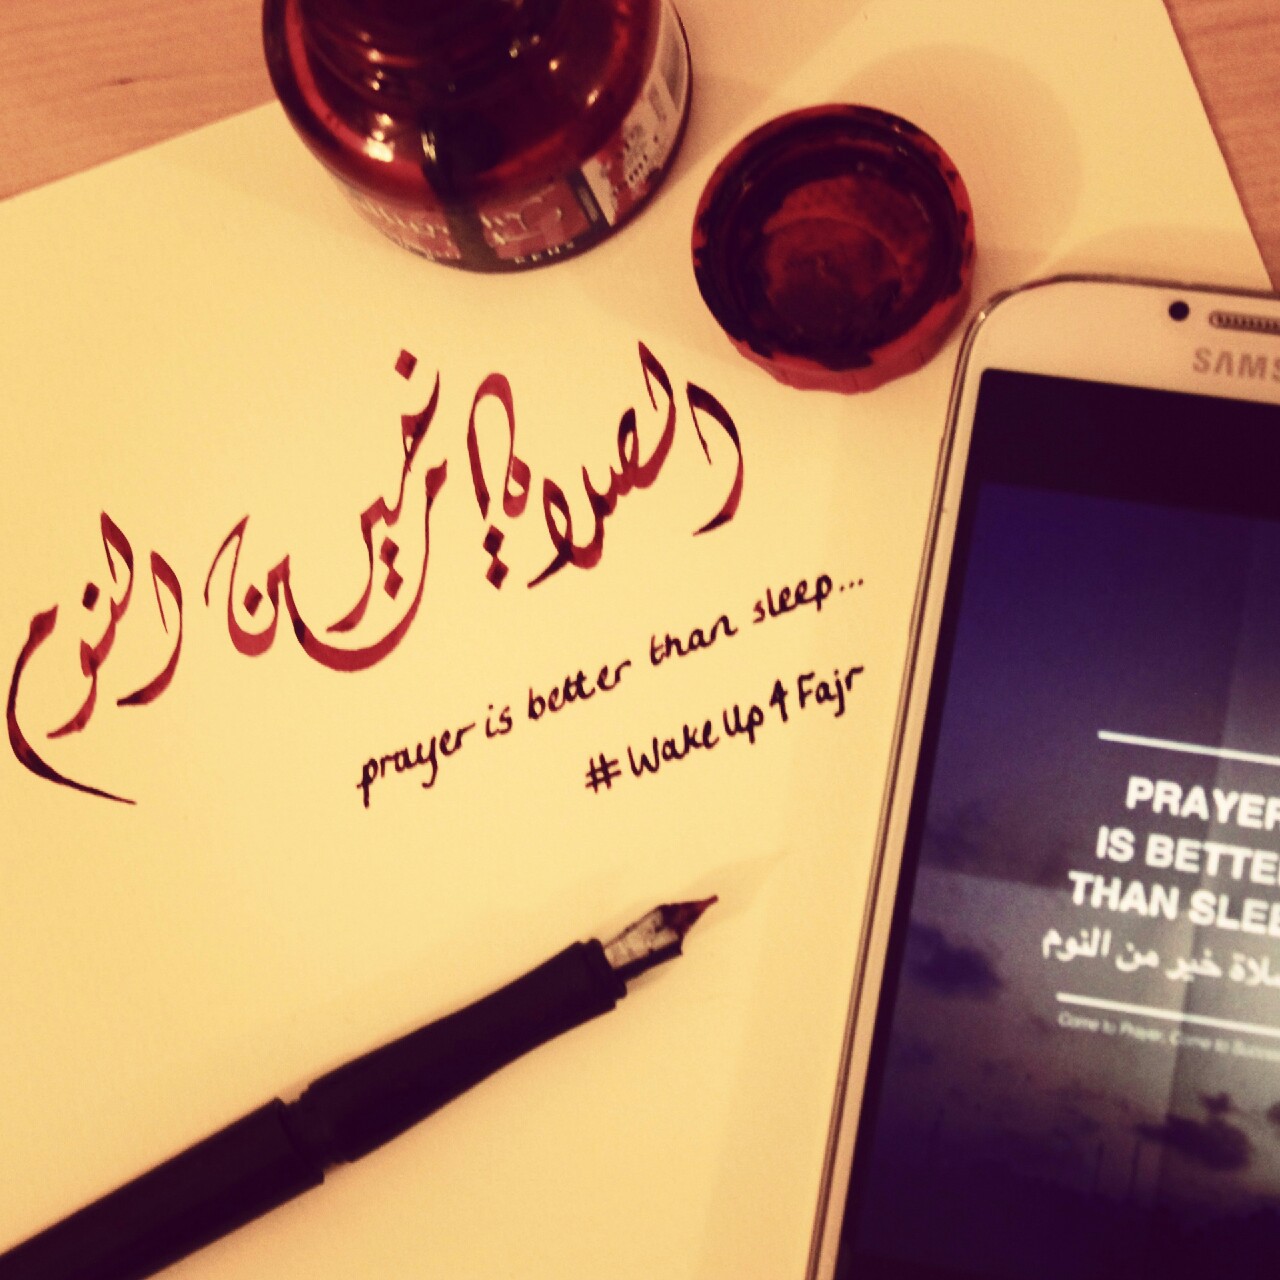 الصلاة خير من النوم
prayer is better than sleep...
#WakeUp4Fajr
SAMS
PRAYER
IS BETTE
THAN SLEE
صلاة خير من النوم
Come to Prayer, Come to Succe